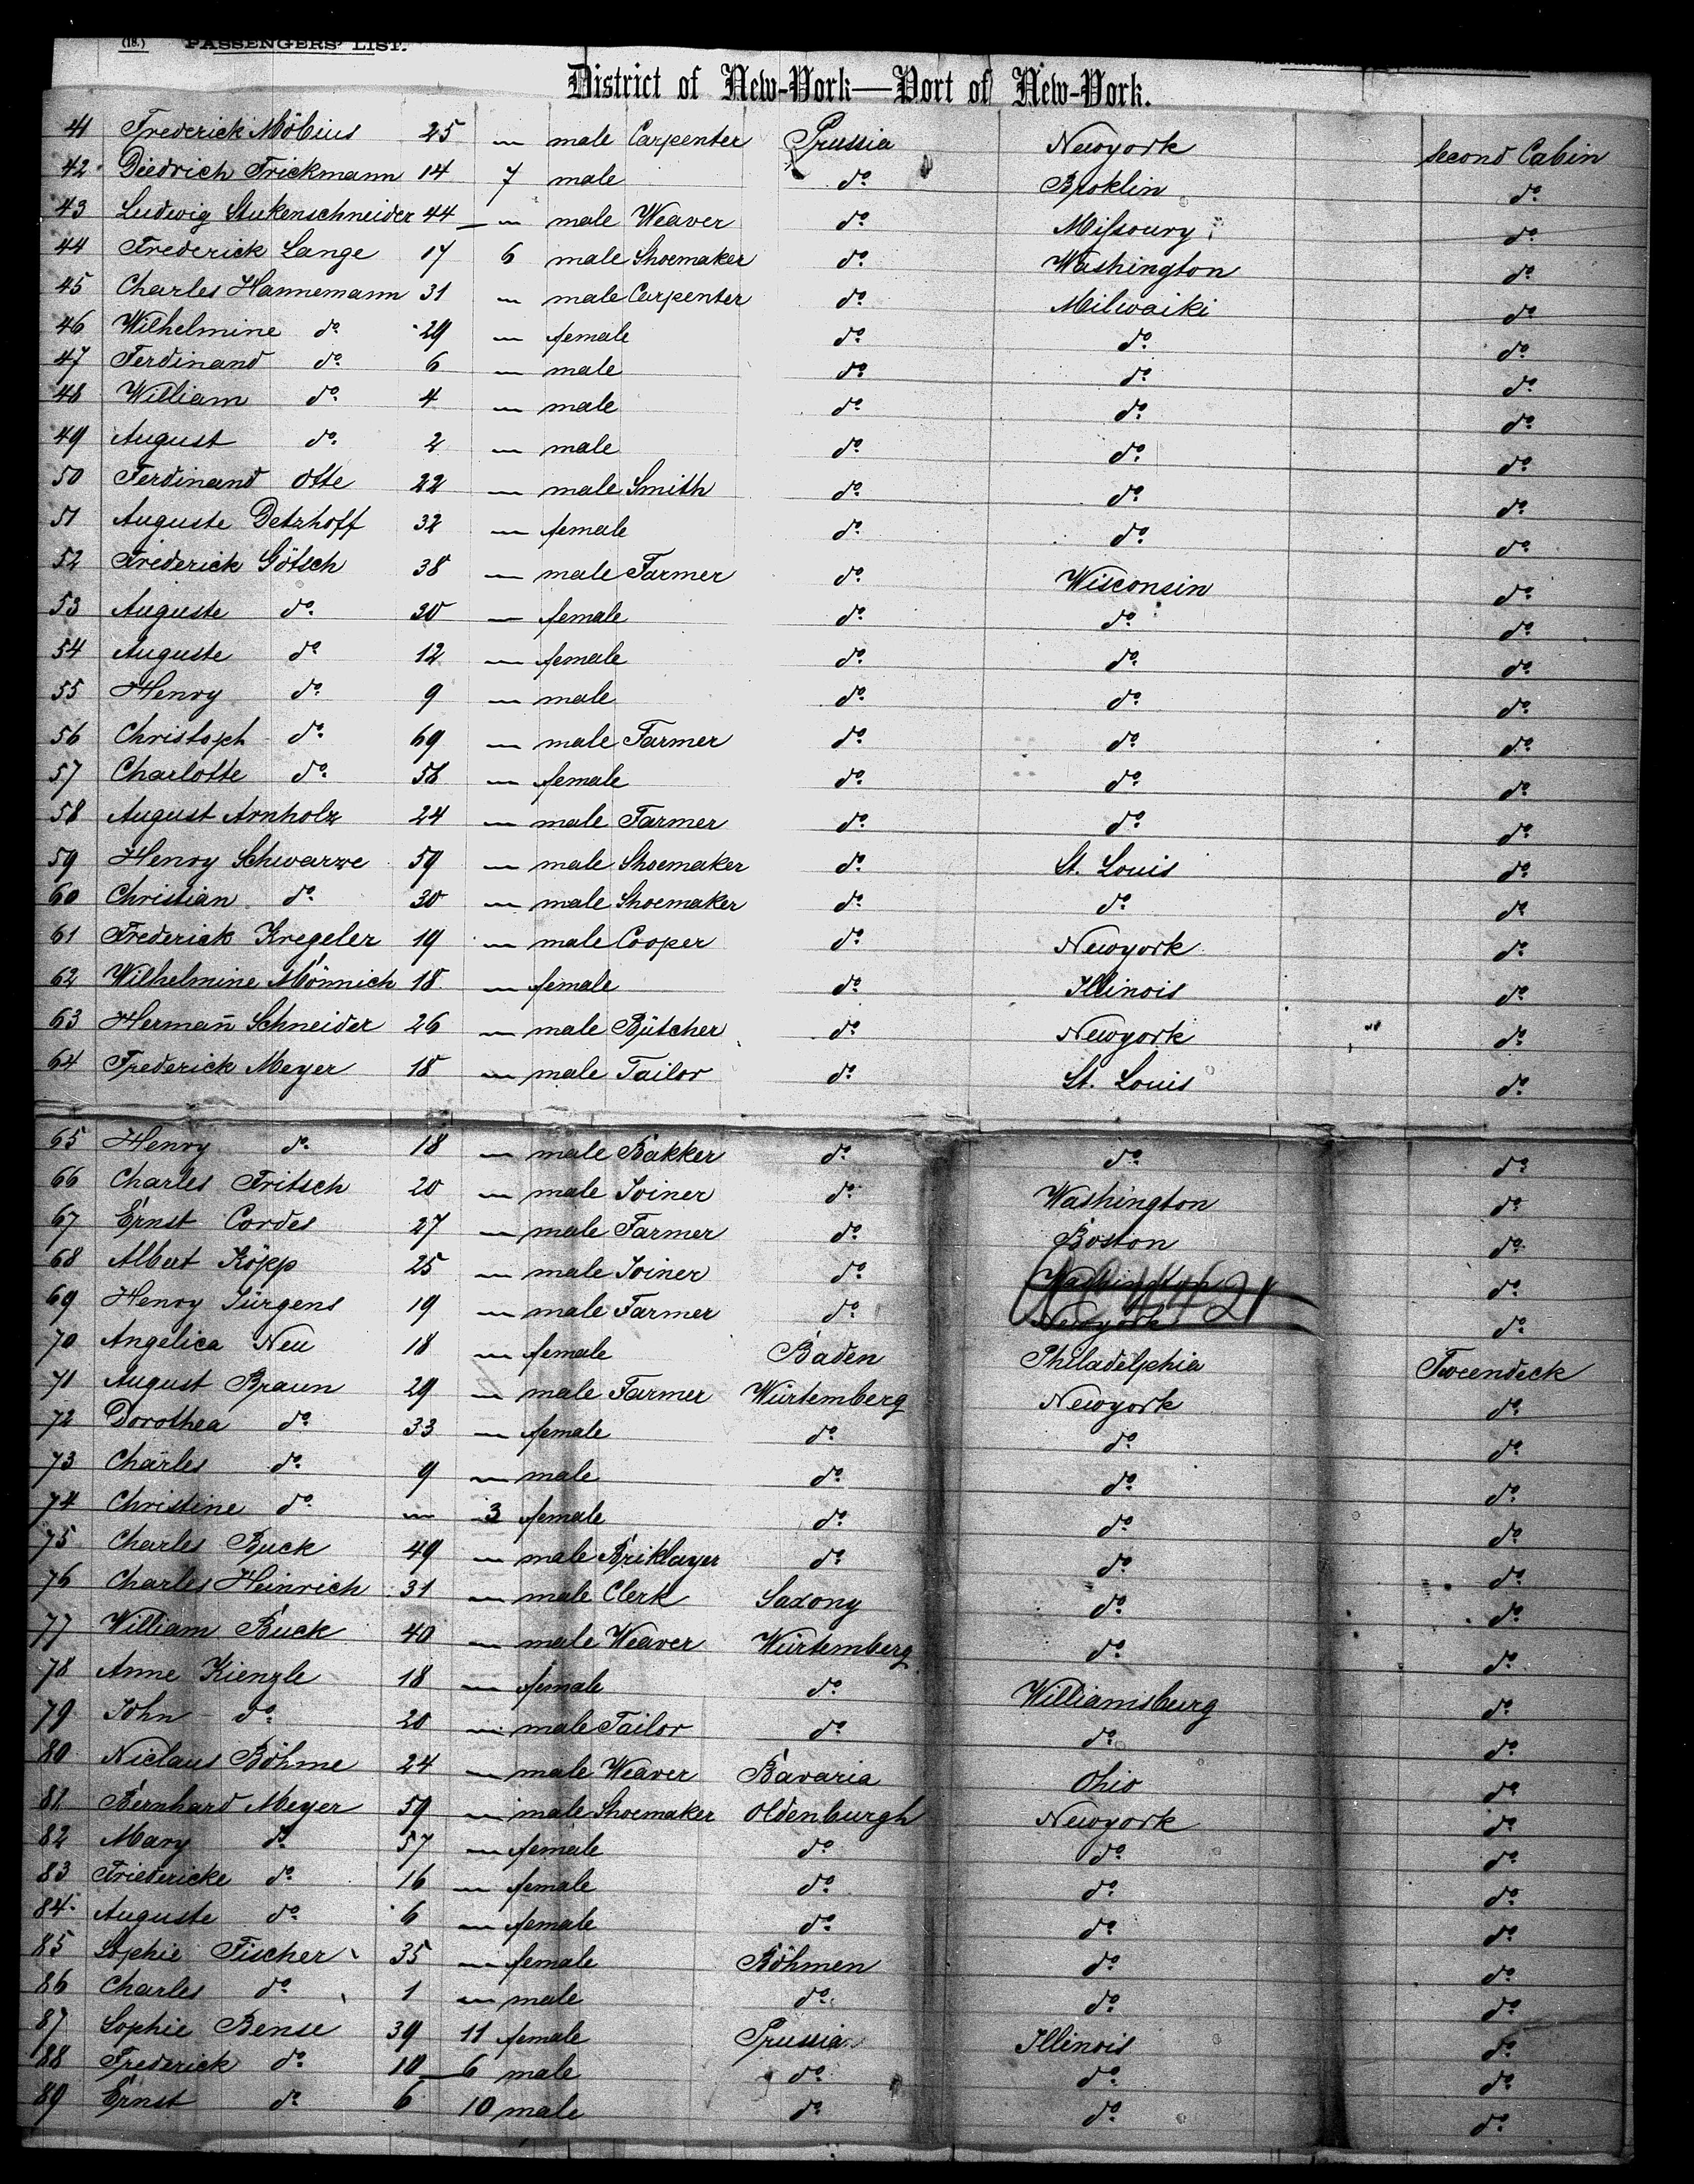 (18.) PASSENGERS' LIST.
District of New-York—Port of New-York.
41 Frederick Möbius 25 — male Carpenter Prussia Newyork second Cabin
42 Diedrich Frickmann 14 7 male do. Broklin do.
43 Ludwig Stukenschneider 44 — male Weaver do. Missoury do.
44 Frederick Lange 17 6 male Shoemaker do. Washington do.
45 Charles Hannemann 31 — male Carpenter do. Milwaiki do.
46 Wilhelmine do. 29 — female do. do. do.
47 Ferdinand do. 6 — male do. do. do.
48 William do. 4 — male do. do. do.
49 August do. 2 — male do. do. do.
50 Ferdinand Otte 22 — male Smith do. do. do.
51 Auguste Detzhoff 32 — female do. do. do.
52 Frederick Götsch 38 — male Farmer do. Wisconsin do.
53 Auguste do. 30 — female do. do. do.
54 Auguste do. 12 — female do. do. do.
55 Henry do. 9 — male do. do. do.
56 Christoph do. 69 — male Farmer do. do. do.
57 Charlotte do. 58 — female do. do. do.
58 August Arnholz 24 — male Farmer do. do. do.
59 Henry Schwarze 59 — male Shoemaker do. St. Louis do.
60 Christian do. 30 — male Shoemaker do. do. do.
61 Frederick Kregeler 19 — male Cooper do. Newyork do.
62 Wilhelmine Mönnich 18 — female do. Illinois do.
63 Hermañ Schneider 26 — male Bütcher do. Newyork do.
64 Frederick Meyer 18 — male Tailor do. St. Louis do.
65 Henry do. 18 — male Bakker do. do. do.
66 Charles Fritsch 20 — male Joiner do. Washington do.
67 Ernst Cordes 27 — male Farmer do. Boston do.
68 Albert Köpp 25 — male Joiner do. Washington do.
69 Henry Jürgens 19 — male Farmer do. Newyork do.
70 Angelica Neu 18 — female Baden Philadelphia Tweendeck
71 August Braun 29 — male Farmer Würtemberg Newyork do.
72 Dorothea do. 33 — female do. do. do.
73 Charles do. 9 — male do. do. do.
74 Christine do. — 3 female do. do. do.
75 Charles Buck 49 — male Briklayer do. do. do.
76 Charles Heinrich 31 — male Clerk Saxony do. do.
77 William Buck 40 — male Weaver Würtemberg do. do.
78 Anne Kienzle 18 — female do. Williamsburg do.
79 John do. 20 — male Tailor do. do. do.
80 Niclaus Böhme 24 — male Weaver Bavaria Ohio do.
81 Bernhard Meyer 59 — male Shoemaker Oldenburgh Newyork do.
82 Mary do. 57 — female do. do. do.
83 Friedericke do. 16 — female do. do. do.
84 Auguste do. 6 — female do. do. do.
85 Sophie Fischer 35 — female Böhmen do. do.
86 Charles do. 1 — male do. do. do.
87 Sophie Bense 39 11 female Prussia Illinois do.
88 Frederick do. 10 6 male do. do. do.
89 Ernst do. 6 10 male do. do. do.